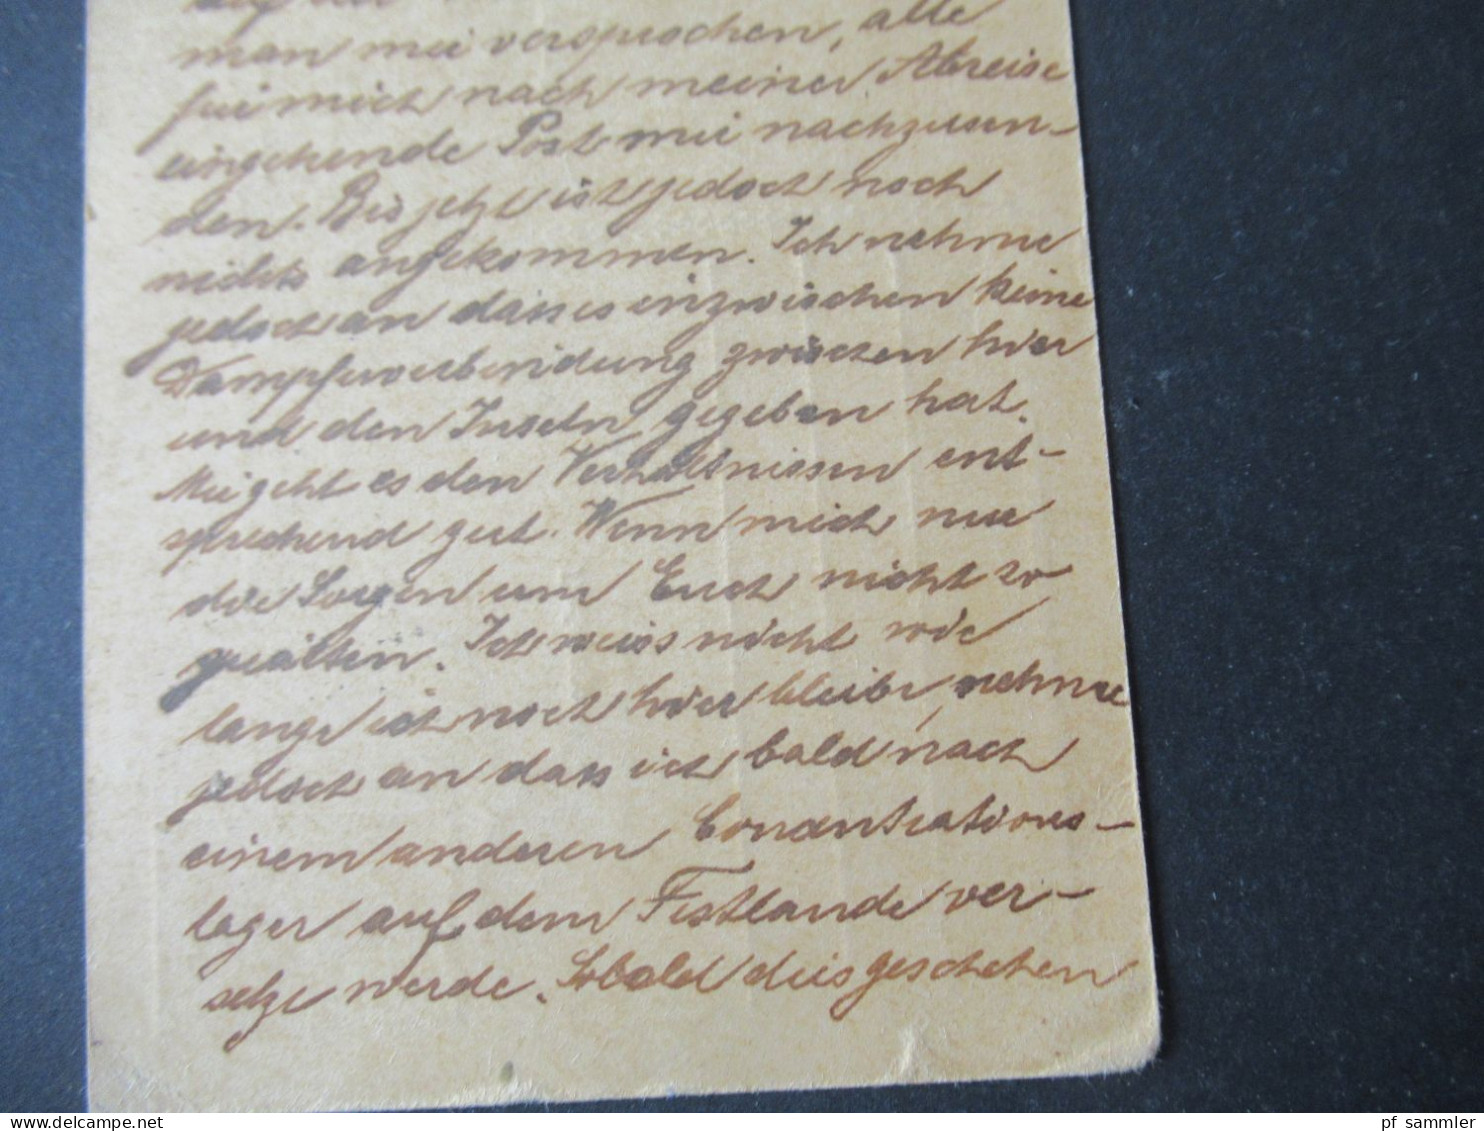 man mir versprochen, alle
für mich nach meiner Abreise
eingehende Post mir nachzusen-
den. Bis jetzt ist jedoch noch
nichts angekommen. Ich nehme
jedoch an dass es inzwischen keine
Dampferverbindung zwischen hier
und den Inseln gegeben hat.
Mir geht es den Verhältnissen ent-
sprechend gut. Wenn mich nur
die Sorgen um Euch nicht so
quälten. Ich weiss nicht wie
lange ich noch hier bleibe, nehme
jedoch an dass ich bald nach
einem anderen Concentrations-
lager auf dem Festlande ver-
setzt werde. Sobald dies geschehen
pf sammler